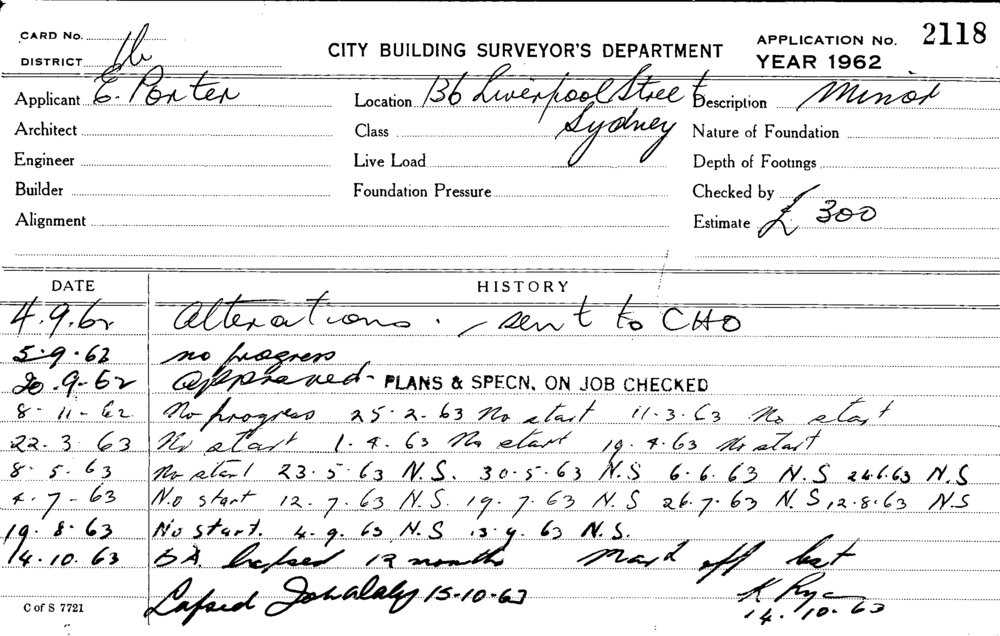 CARD No.
DISTRICT 1b
CITY BUILDING SURVEYOR'S DEPARTMENT
APPLICATION No. 2118
YEAR 1962
Applicant E. Porter
Location 136 Liverpool Street
Sydney
Description Minor
Architect
Class
Nature of Foundation
Engineer
Live Load
Depth of Footings
Builder
Foundation Pressure
Checked by
Alignment
Estimate £ 300
DATE HISTORY
4.9.62 Alterations. sent to CHO
5.9.62 no progress
20.9.62 Approved - PLANS & SPECN. ON JOB CHECKED
8-11-62 No progress 25.2.63 No start 11.3.63 No start
22.3.63 No start 1.4.63 No start 19.4.63 No start
8.5.63 No start 23.5.63 N.S. 30.5.63 N.S 6.6.63 N.S 24.6.63 N.S
4.7-63 No start 12.7.63 N.S. 19.7.63 N.S 26.7.63 N.S, 12.8.63 N.S
19.8.63 No start. 4.9.63 N.S 13.9.63 N.S.
14.10.63 B.A. lapsed 12 months Mark'd off list
Lapsed John Daly 15-10-63
14.10.63
C of S 7721